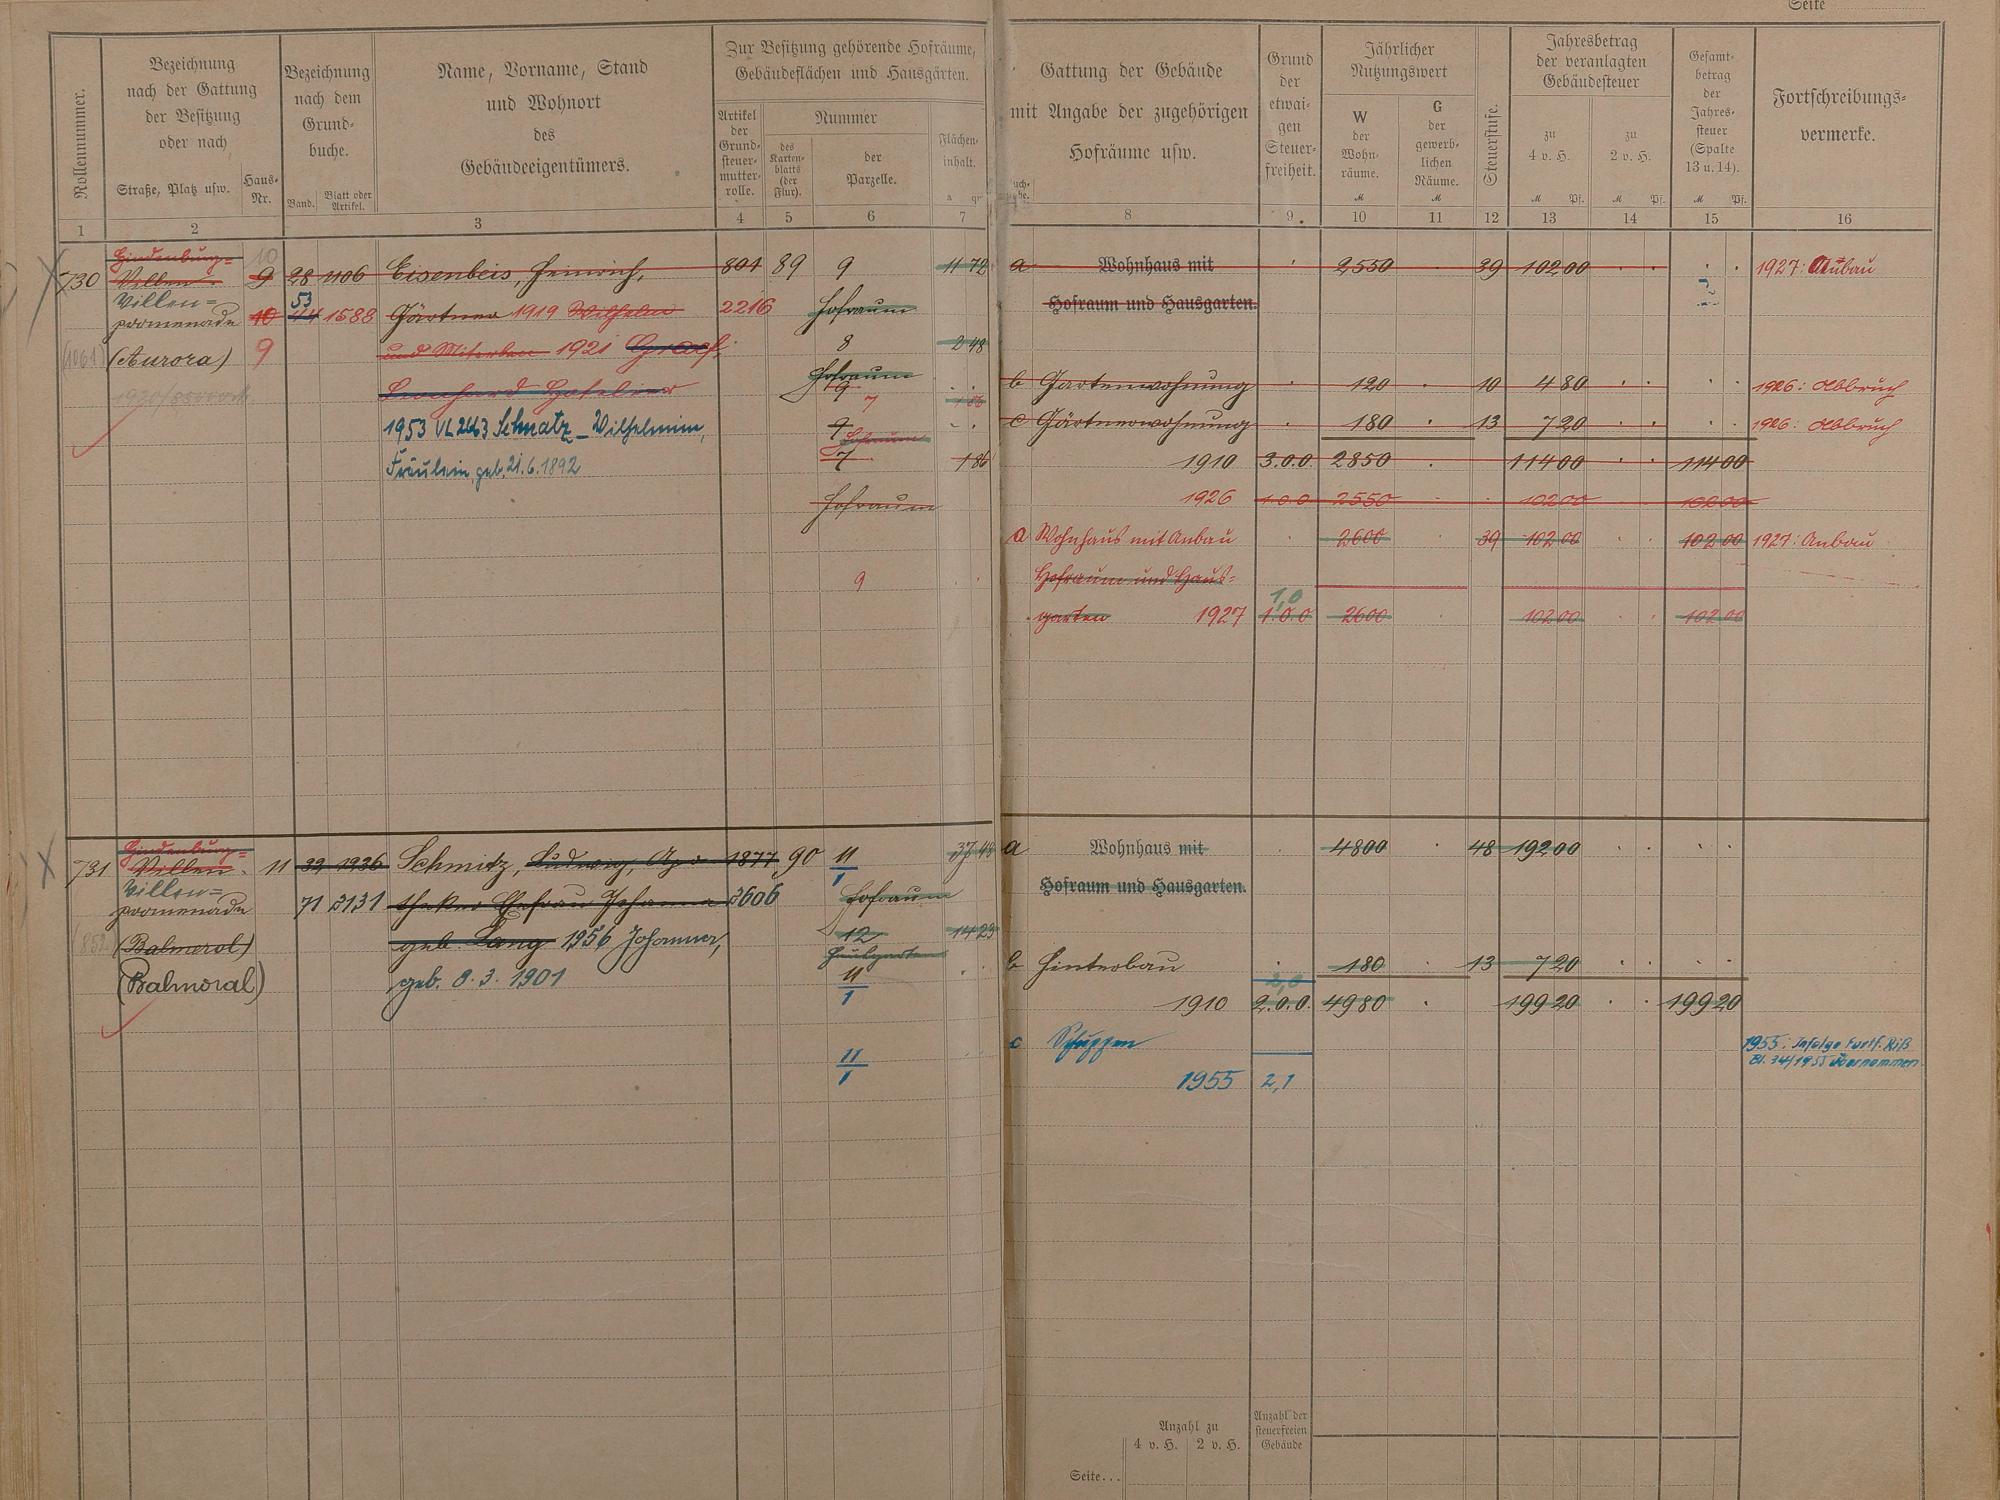 Seite
Rollennummer.
Bezeichnung
nach der Gattung
der Besitzung
oder nach
Straße, Platz usw.
Haus-
Nr.
Bezeichnung
nach dem
Grund-
buche.
Band.
Blatt oder
Artikel.
Name, Vorname, Stand
und Wohnort
des
Gebäudeeigentümers.
Zur Besitzung gehörende Hofräume,
Gebäudeflächen und Hausgärten.
Artikel
der
Grund-
steuer-
mutter-
rolle.
Nummer
des
Karten-
blatts
(der
Flur).
der
Parzelle.
Flächen-
inhalt.
a
Gattung der Gebäude
mit Angabe der zugehörigen
Hofräume usw.
Grund
der
etwai-
gen
Steuer-
freiheit.
Jährlicher
Nutzungswert
W
der
Wohn-
räume.
M
G
der
gewerb-
lichen
Räume.
M
Steuerstufe.
Jahresbetrag
der veranlagten
Gebäudesteuer
zu
4 v. H.
M Pf.
zu
2 v. H.
M Pf.
Gesamt-
betrag
der
Jahres-
steuer
(Spalte
13 u. 14).
M Pf.
Fortschreibungs-
vermerke.
1 2 3 4 5 6 7 8 9. 10 11 12 13 14 15 16
Hindenburg= 10
730 Villen- 9 28 1106 Eisenbeis, Heinrich, 804 89 9 11 72 a Wohnhaus mit 2550 39 102 00 1927: Anbau
Villen= 53
promenade 10 44 1588 Gärtner 1919 Wilhelm 2216 Hofraum Hofraum und Hausgarten.
(Aurora) 9 und Miterben 1921 Graef, 8 2 48
Leonhard Hotelier Hofraum
9 b Gartenwohnung 120 10 4 80 1926: Abbruch
7 1 86
1953 VL 263 Schmatz - Wilhelmine, 9 c Gärtnerwohnung 180 13 7 20 1926: Abbruch
Hofraum
Fräulein, geb. 21.6.1892 7 1 86 1910 3.0.0. 2850 114 00 114 00
Hofraum 1926 1.0.0 2550 102 00 102 00
a Wohnhaus mit Anbau 2600 39 102 00 102 00 1927: Anbau
9 Hofraum und Haus=
1,0
garten 1927 1.0.0 2600 102 00 102 00
Hindenburg=
731 Villen- 11 39 1936 Schmitz, Ludwig, Apo- 1877 90 11/1 37 48 a Wohnhaus mit 4800 48 192 00
Villen=
promenade 71 2131 theker Ehefrau Johanna 2606 Hofraum Hofraum und Hausgarten.
(Balmerol) geb. Lang 1956 Johanna, 12 14 23
(Balmoral) geb. 8.3.1901 11/1 b Hinterbau 180 13 7 20
2,0
1910 2.0.0. 4980 199 20 199 20
11/1 c Schuppen 1955: Infolge Fortf. Riß
Bl. 34/1955 übernommen
1955 2,1
Anzahl zu
4 v. H. 2 v. H.
Anzahl der
steuerfreien
Gebäude
Seite...